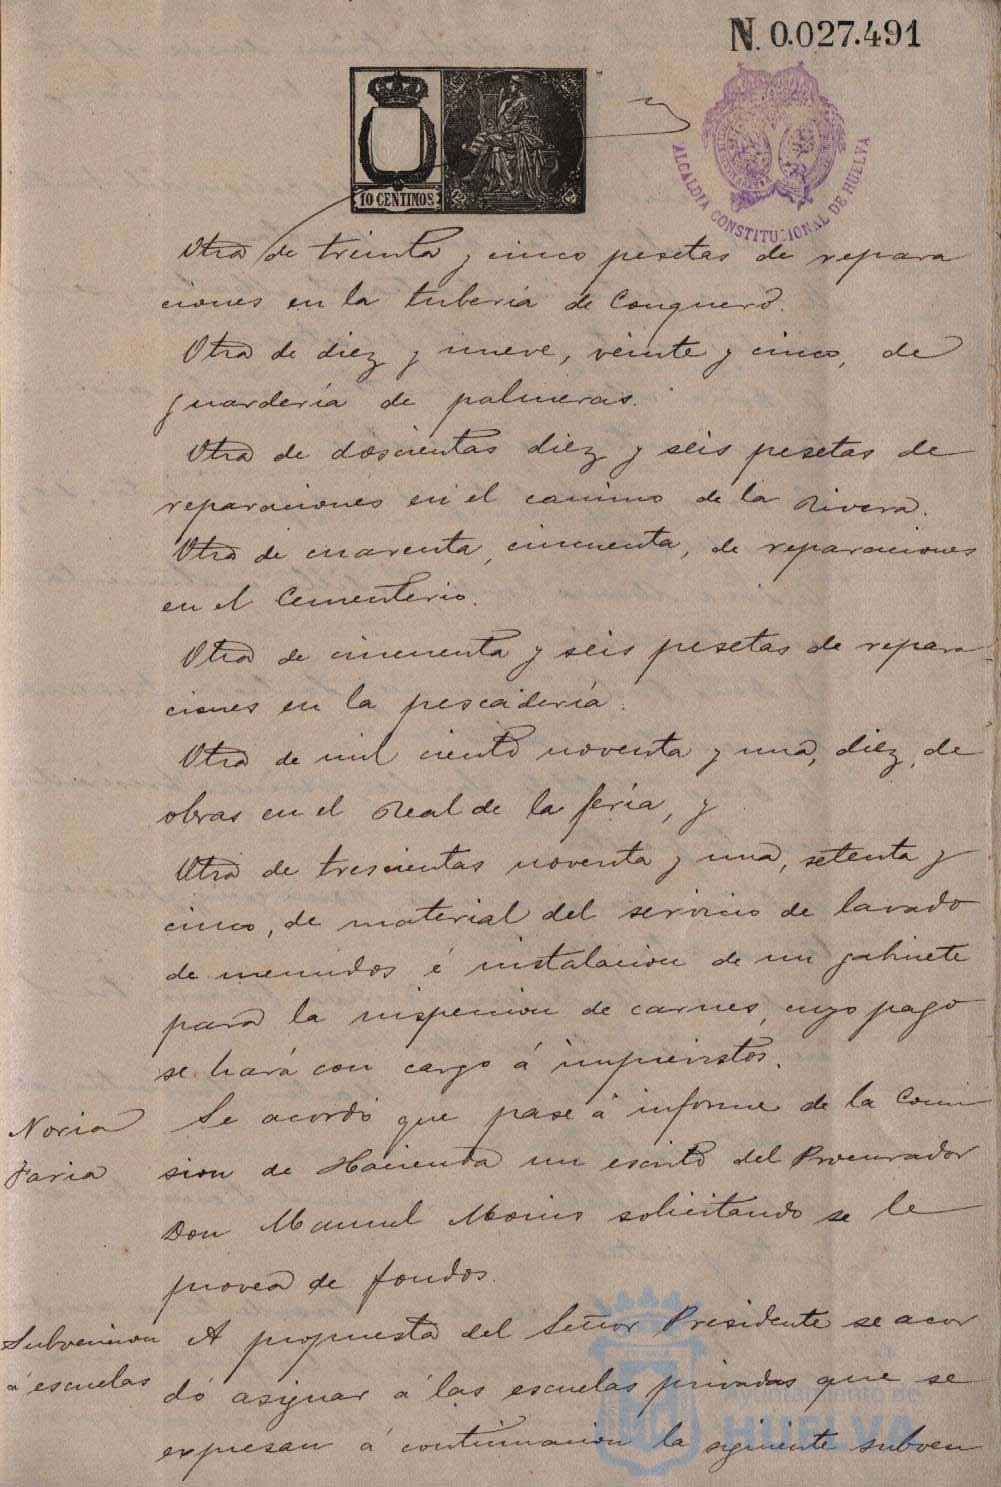 N. 0.027.491
10 CENTIMOS
ALCALDIA CONSTITUCIONAL DE HUELVA
Otra de treinta y cinco pesetas de repara
ciones en la tubería de Conquero.
Otra de diez y nueve, veinte y cinco, de
guardería de palmeras.
Otra de doscientas diez y seis pesetas de
reparaciones en el camino de la Rivera.
Otra de cuarenta, cincuenta, de reparaciones
en el Cementerio.
Otra de cincuenta y seis pesetas de repara-
ciones en la pescadería.
Otra de mil ciento noventa y una, diez, de
obras en el Real de la feria, y
Otra de trescientas noventa y una, setenta y
cinco, de material del servicio de lavado
de menudos é instalacion de un gabinete
para la inspeccion de carnes, cuyo pago
se hará con cargo á imprevistos.
Noria
Faria
Se acordó que pase á informe de la Comi
sion de Hacienda un escrito del Procurador
Don Manuel solicitando se le
provea de fondos.
Subvencion
á escuelas
A propuesta del Señor Presidente se acor
dó asignar á las escuelas privadas que se
expresan á continuacion la siguiente subven
Ayuntamiento de
HUELVA